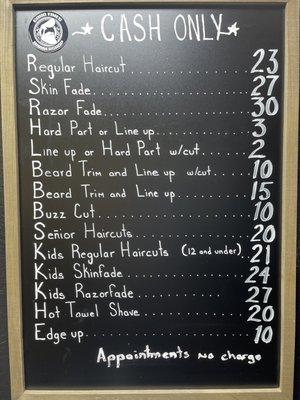 CASH ONLY
Regular Haircut 23
Skin Fade 27
Razor Fade 30
Hard Part or Line up 3
Line up or Hard Part w/cut 2
Beard Trim and Line up w/cut 10
Beard Trim and Line up 15
Buzz Cut 10
Señior Haircuts 20
Kids Regular Haircuts (12 and under) 21
Kids Skinfade 24
Kids Razorfade 27
Hot Towel Shave 20
Edge up 10
Appointments no charge